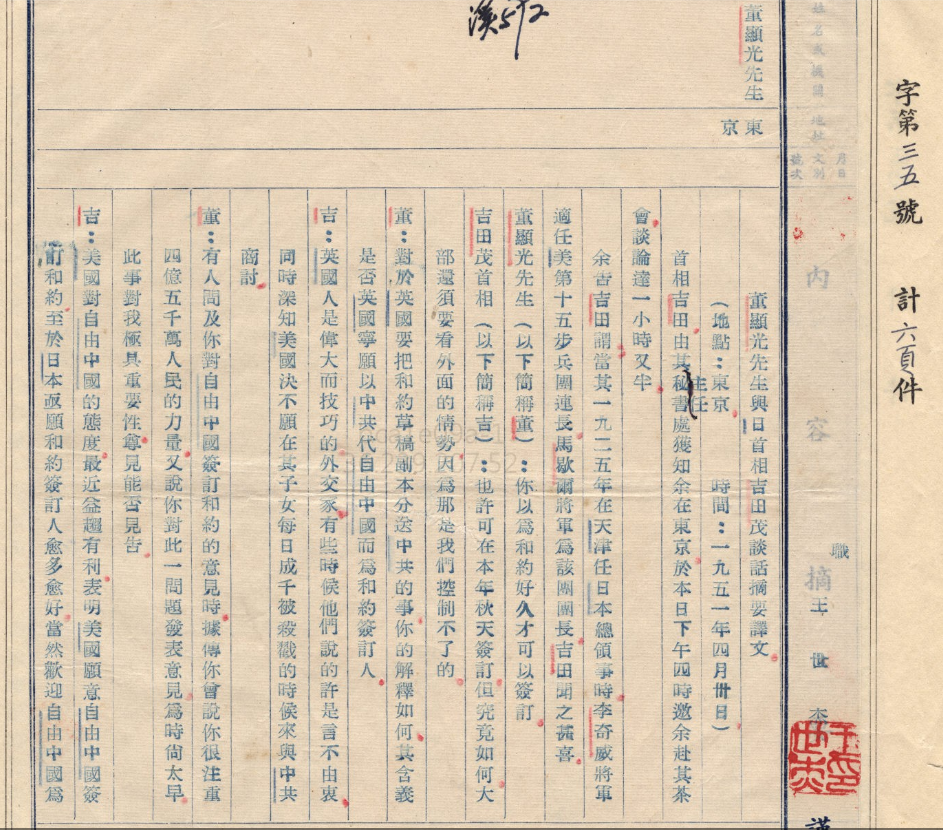 字第三五號　計六頁件
姓名或機關　地址
月日
文別
號次
內容摘
職　王世杰　謹
董顯光先生
東京
溪5/2
董顯光先生與日首相吉田茂談話摘要譯文
（地點：東京　時間：一九五一年四月卅日）
首相吉田由其秘書處獲知余在東京於本日下午四時邀余赴其茶
主任
會談論達一小時又半
余告吉田謂當其一九二五年在天津任日本總領事時李奇威將軍
適任美第十五步兵團連長馬歇爾將軍爲該團團長吉田聞之甚喜
董顯光先生（以下簡稱董）：你以爲和約好久才可以簽訂
吉田茂首相（以下簡稱吉）：也許可在本年秋天簽訂但究竟如何大
部還須要看外面的情勢因爲那是我們控制不了的
董：對於英國要把和約草稿副本分送中共的事你的解釋如何其含義
是否英國寧願以中共代自由中國而爲和約簽訂人
吉：英國人是偉大而技巧的外交家有些時候他們說的許是言不由衷
同時深知美國決不願在其子女每日成千被殺戮的時候來與中共
商討
董：有人問及你對自由中國簽訂和約的意見時據傳你曾說你很注重
四億五千萬人民的力量又說你對此一問題發表意見爲時尙太早
此事對我極具重要性尊見能否見告
吉：美國對自由中國的態度最近益趨有利表明美國願意自由中國簽
訂和約至於日本亟願和約簽訂人愈多愈好當然歡迎自由中國爲